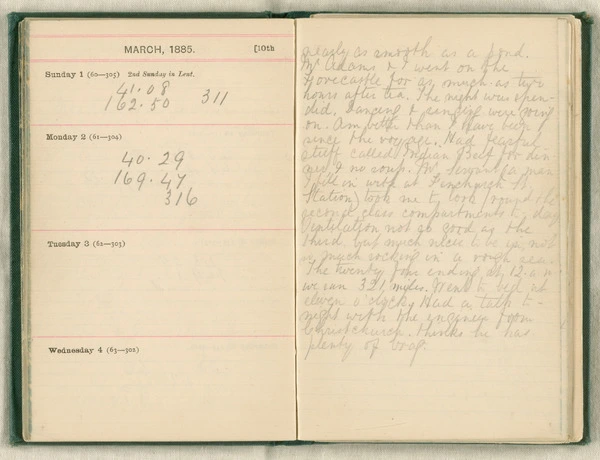 MARCH, 1885. [10th
Sunday 1 (60—305) 2nd Sunday in Lent.
41.08
162.50 311
Monday 2 (61—304)
40.29
169.47
316
Tuesday 3 (62—303)
Wednesday 4 (63—302)
nearly as smooth as a pond.
Mr Adams & I went on the
Forecastle for as much as two
hours after tea. The night was splen-
did. Dancing & singing were going
on. Am better than I have been
since the voyage. Had fearful
stuff called Indian Beef for din
ner & no soup. Mr (a man
I fell in with at Fenchurch St.
Station) took me to look round the
second class compartments to day
Ventilation not so good as the
third, but much nicer to be in not
so much rocking in a rough sea.
The twenty four ending at 12 a.m
we ran 321 miles. Went to bed at
eleven o'clock. Had a talk to-
night with the engineer from
Christchurch. thinks he has
plenty of brag.